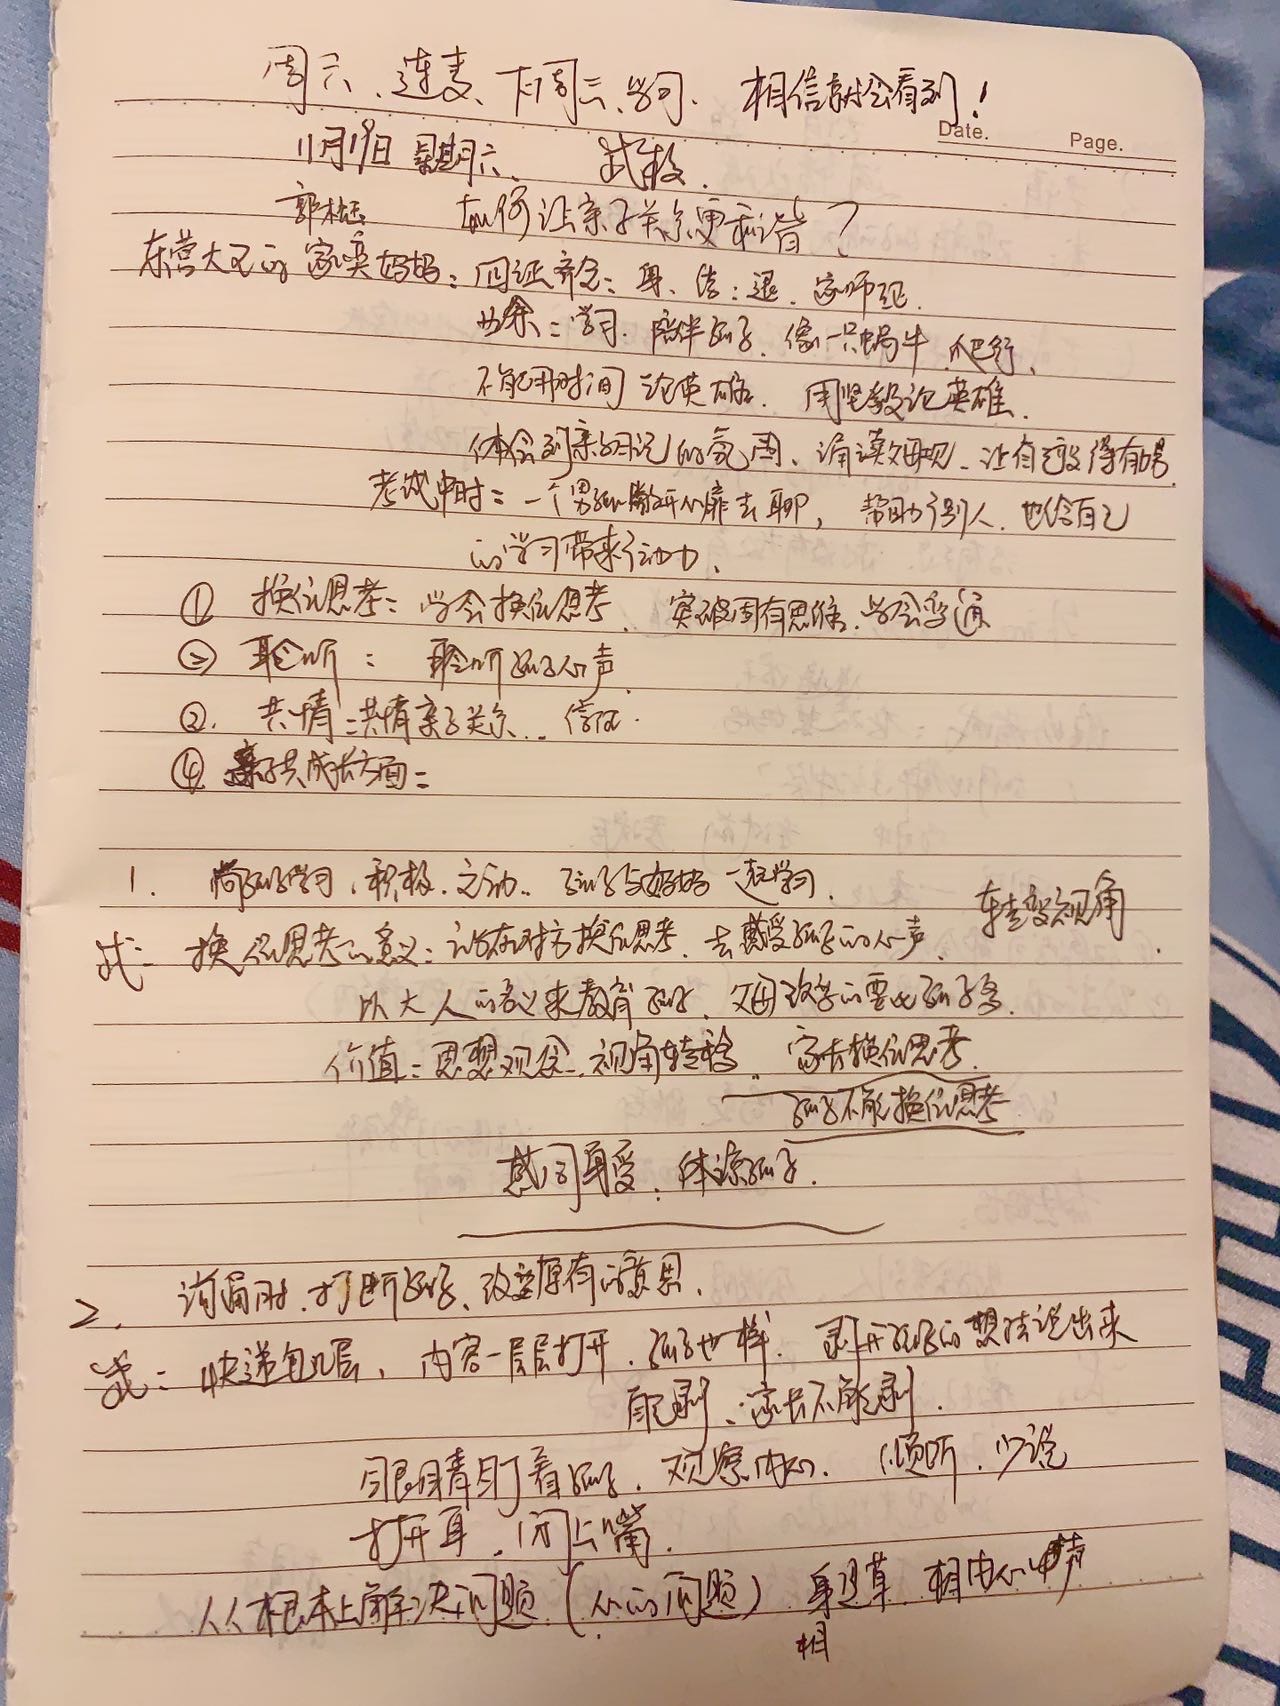 周六、连麦、下周三、学习. 相信就会看到!
Date. Page.
11月19日 星期六、 武校.
如何让亲子关系更和谐?
东营大王的家奕妈妈:四证齐全:身、结:退、
业余:学习. 陪伴孩子. 像一只蜗牛 爬行、
不能用时间论英雄. 用坚毅论英雄.
体会到亲子日记的氛围、诵读父母规、让自己
考试中时:一个男孩敞开心扉去聊, 帮助了别人. 也给自己
的学习带来了动力、
① 换位思考:学会换位思考、突破固有思维. 学会变通
③ 聆听: 聆听孩子心声.
②. 共情:共情亲子关系..
④ 亲子共成长方面:
1. 孩子学习、积极、主动.. 孩子与妈妈一起学习. 转变视角
武: 换位思考的意义:站在对方换位思考、去感受孩子的心声.
以大人的名义来教育孩子、父母改变的要比孩子多.
价值:思想观念、视角转移、家长换位思考.
孩子不能换位思考
感同身受、体谅孩子.
2. 打断孩子、改变原有的意思.
武: 快递包几层、内容一层层打开、孩子也一样、剥开孩子的想法说出来
能剥、家长不能剥.
眼睛盯着孩子、观察内心. 倾听、少说
打开耳、闭上嘴.
从根本上解决问题(心的问题) 相由心声
相